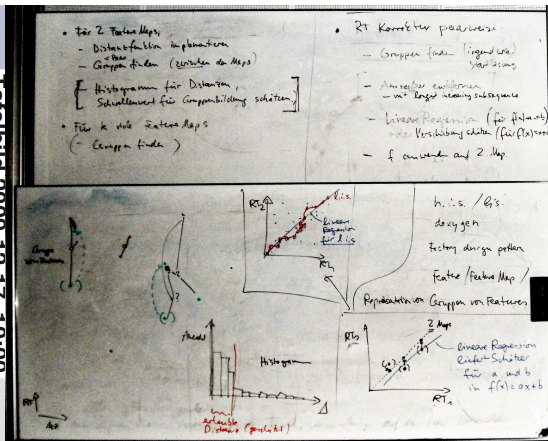 • Für 2 Feature Maps,
– Distanzfunktion implementieren
– Gruppen finden (zwischen den Maps)
– Histogramm für Distanzen,
Schwellenwert für Gruppenbildung schätzen,
• Für k viele Feature Maps
(– Gruppen finden )
• RT Korrektur paarweise
– Gruppen finden (irgendwie
– Ausreißer entfernen
– mit longest increasing subsequence
– Lineare Regression (für f(x)=ax+b)
oder Verschiebung schätzen (für f(x)=x+
– f anwenden auf 2. Map.
RT2
l.i.s.
lineare
Regression
für l.i.s
RT1
h.i.s. / lis.
doxygen
Factory design pattern
Feature/Feature Map/
Repräsentation von Gruppen von Features
Gruppe
von Features
?
RT
m/z
Histogramm
Δ
erlaubte
Distanz (geschätzt)
RT2
2 Maps
RT1
lineare Regression
liefert Schätzer
für a und b
in f(x)=ax+b